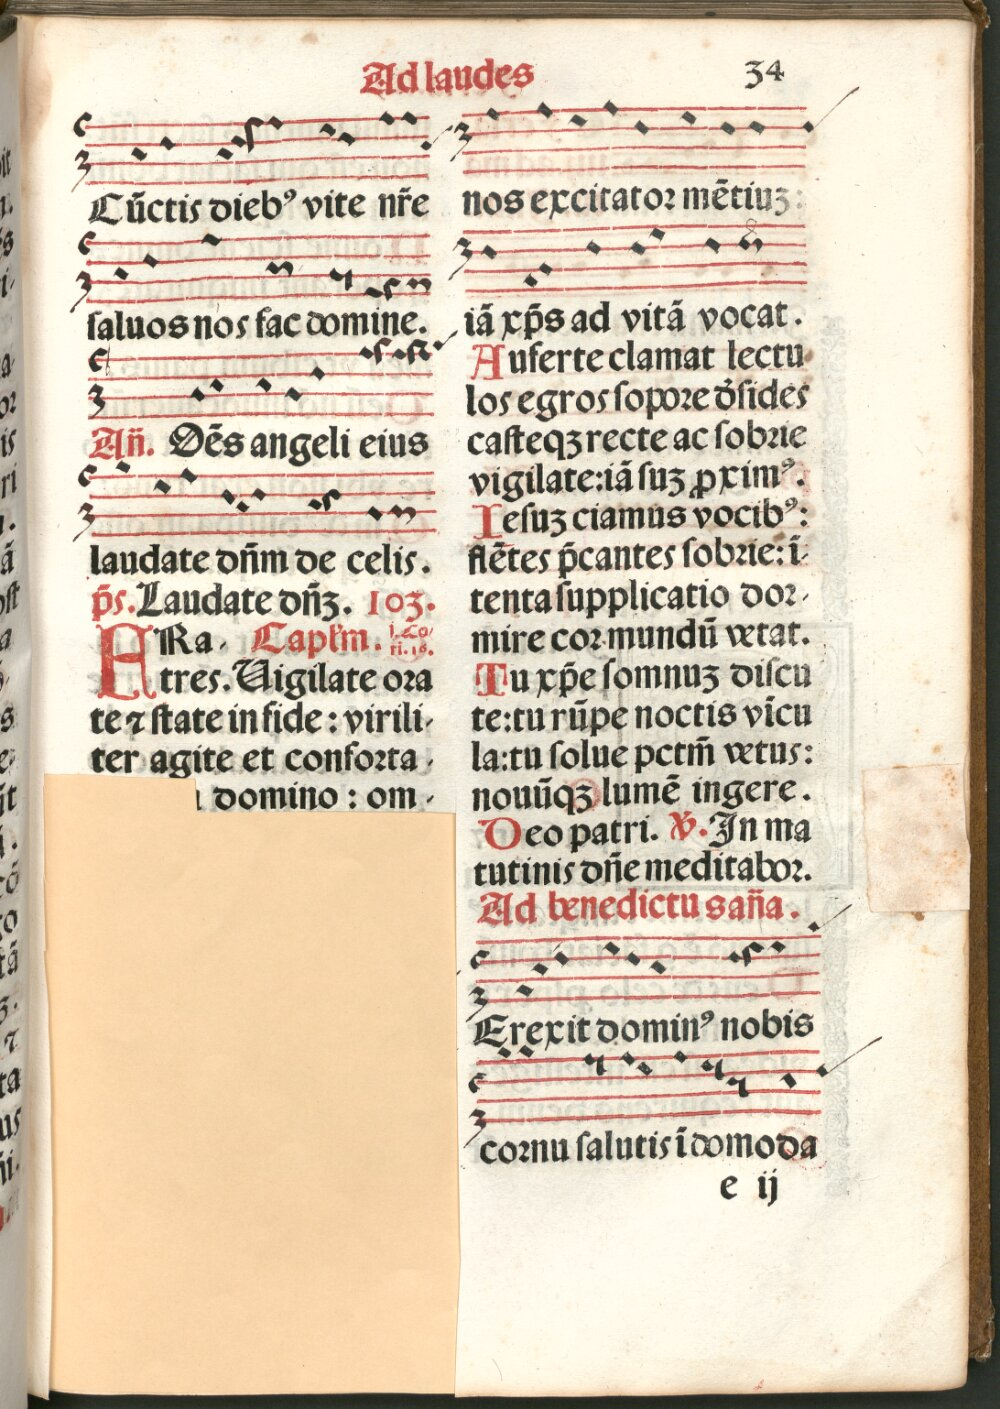 Ad laudes
34
Cūctis dieb⁹ vite nr̄e
saluos nos fac domine.
An̄. Oēs angeli eius
laudate dn̄m de celis.
p̄s. Laudate dn̄ꝫ. 103.
FRa, Capl'm. i. Co
ri. 16.
tres. Uigilate ora
te ⁊ state in fide : virili,
ter agite et conforta,
domino : om,
nos excitator mētiuꝫ:
iā xp̄s ad vitā vocat.
Auferte clamat lectu
los egros sopore d̄sides
casteqꝫ recte ac sobrie
vigilate: iā suꝫ ꝓxim⁹.
Iesuꝫ ciamus vocib⁹:
flētes p̄cantes sobrie: ī,
tenta supplicatio dor,
mire cor mundū vetat.
Tu xp̄e somnuꝫ discu
te: tu rūpe noctis vīcu
la: tu solue pctm̄ vetus:
nouūqꝫ lumē ingere.
Deo patri. ℣. In ma
tutinis dn̄e meditabor.
Ad benedictu san̄a.
Erexit domin⁹ nobis
cornu salutis ī domo da
e ij